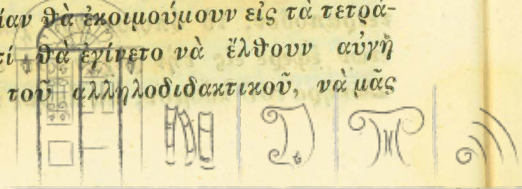 ίαν θὰ ἐκοιμούμουν εἰς τὰ τετρά-
τί θὰ ἐγίνετο νὰ ἔλθουν αὐγῆ
τοῦ αλληλοδιδακτικοῦ, νὰ μᾶς